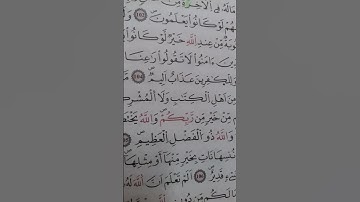 مَالَهُ فِي الْآخِرَةِ مِنْ
لَوْ كَانُوا يَعْلَمُونَ ١٠٢
مِّنْ عِندِ اللَّهِ خَيْرٌ لَّوْ كَانُوا
ءَامَنُوا لَا تَقُولُوا رَاعِنَا
وَلِلْكَافِرِينَ عَذَابٌ أَلِيمٌ ١٠٤
مِنْ أَهْلِ الْكِتَابِ وَلَا الْمُشْرِكِ
مِنْ خَيْرٍ مِّن رَّبِّكُمْ وَاللَّهُ يَخْتَ
وَاللَّهُ ذُو الْفَضْلِ الْعَظِيمِ
نُنسِهَا نَأْتِ بِخَيْرٍ مِّنْهَا أَوْ مِثْلِهَا
قَدِيرٌ ١٠٦ أَلَمْ تَعْلَمْ أَنَّ اللَّهَ لَهُ
لَكُم مِّن دُونِ